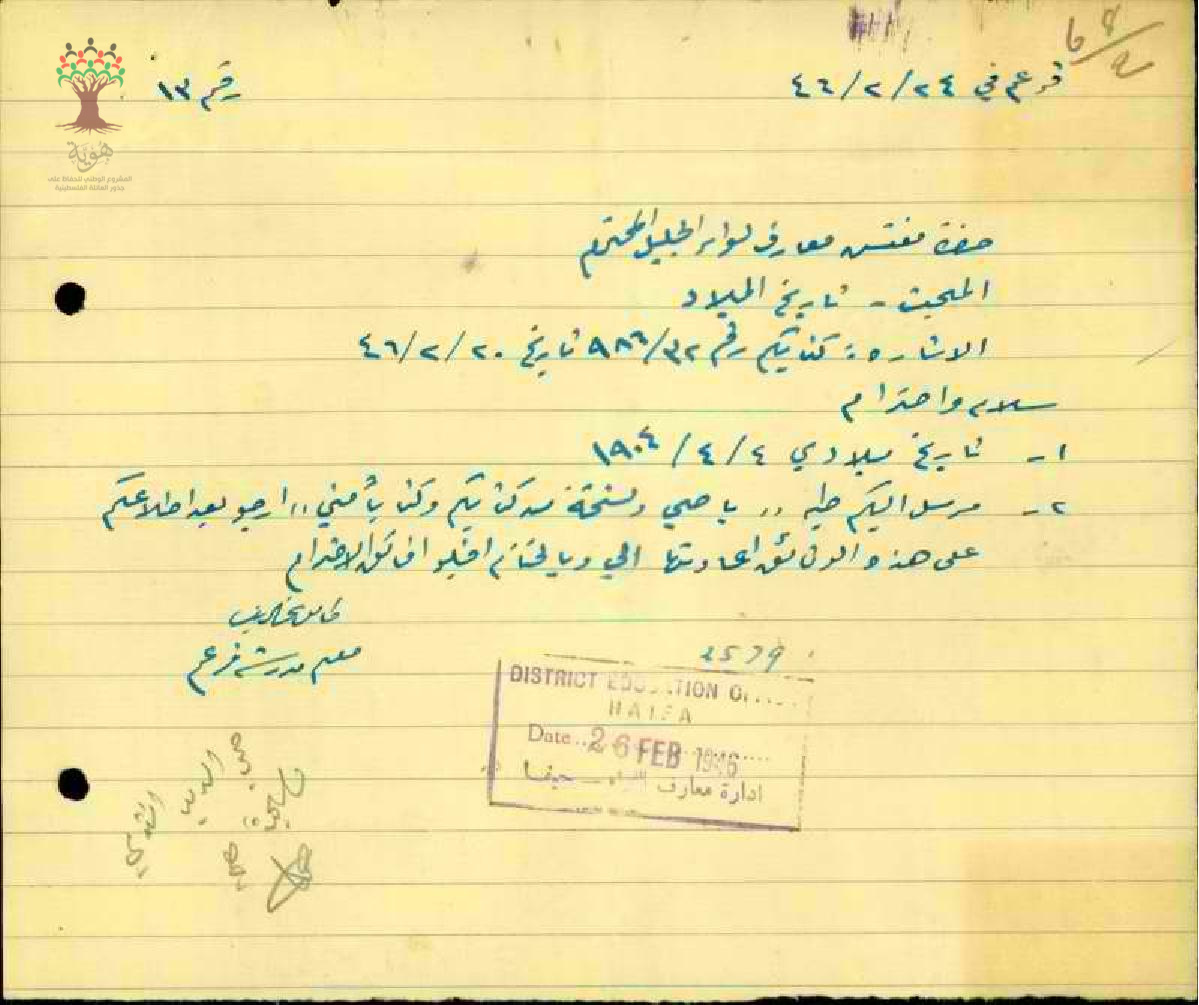 فرعم في ٢٤/٢/٤٦
رقم ١٣
هوية
المشروع الوطني للحفاظ على
جذور العائلة الفلسطينية
حضرة مفتش معارف لواء الجليل المحترم
المبحث - تاريخ الميلاد
الاشاره: كتابكم رقم ٩٨٦/٣٢ تاريخ ٢٠/٢/٤٦
سلام واحترام
١- تاريخ ميلادي ٤/٤/١٩٠٤
٢- مرسل اليكم طيه ,, ونسخة من كتابكم وكتاب ,, ارجو بعد اطلاعكم
على هذه الوثائق اعادتها الي وبالختام اقبلوا فائق الاحترام
معلم مدرسة فرعم
2579
DISTRICT EDUCATION
HAIFA
Date 26 FEB 1946
ادارة معارف اللواء - حيفا